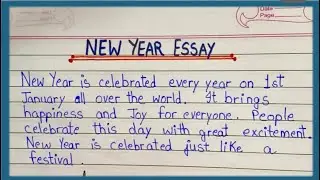 Date
Page
NEW YEAR ESSAY
New Year is celebrated every year on 1st
January all over the world. It brings
happiness and Joy for everyone. People
celebrate this day with great excitement.
New Year is celebrated just like a
festival.